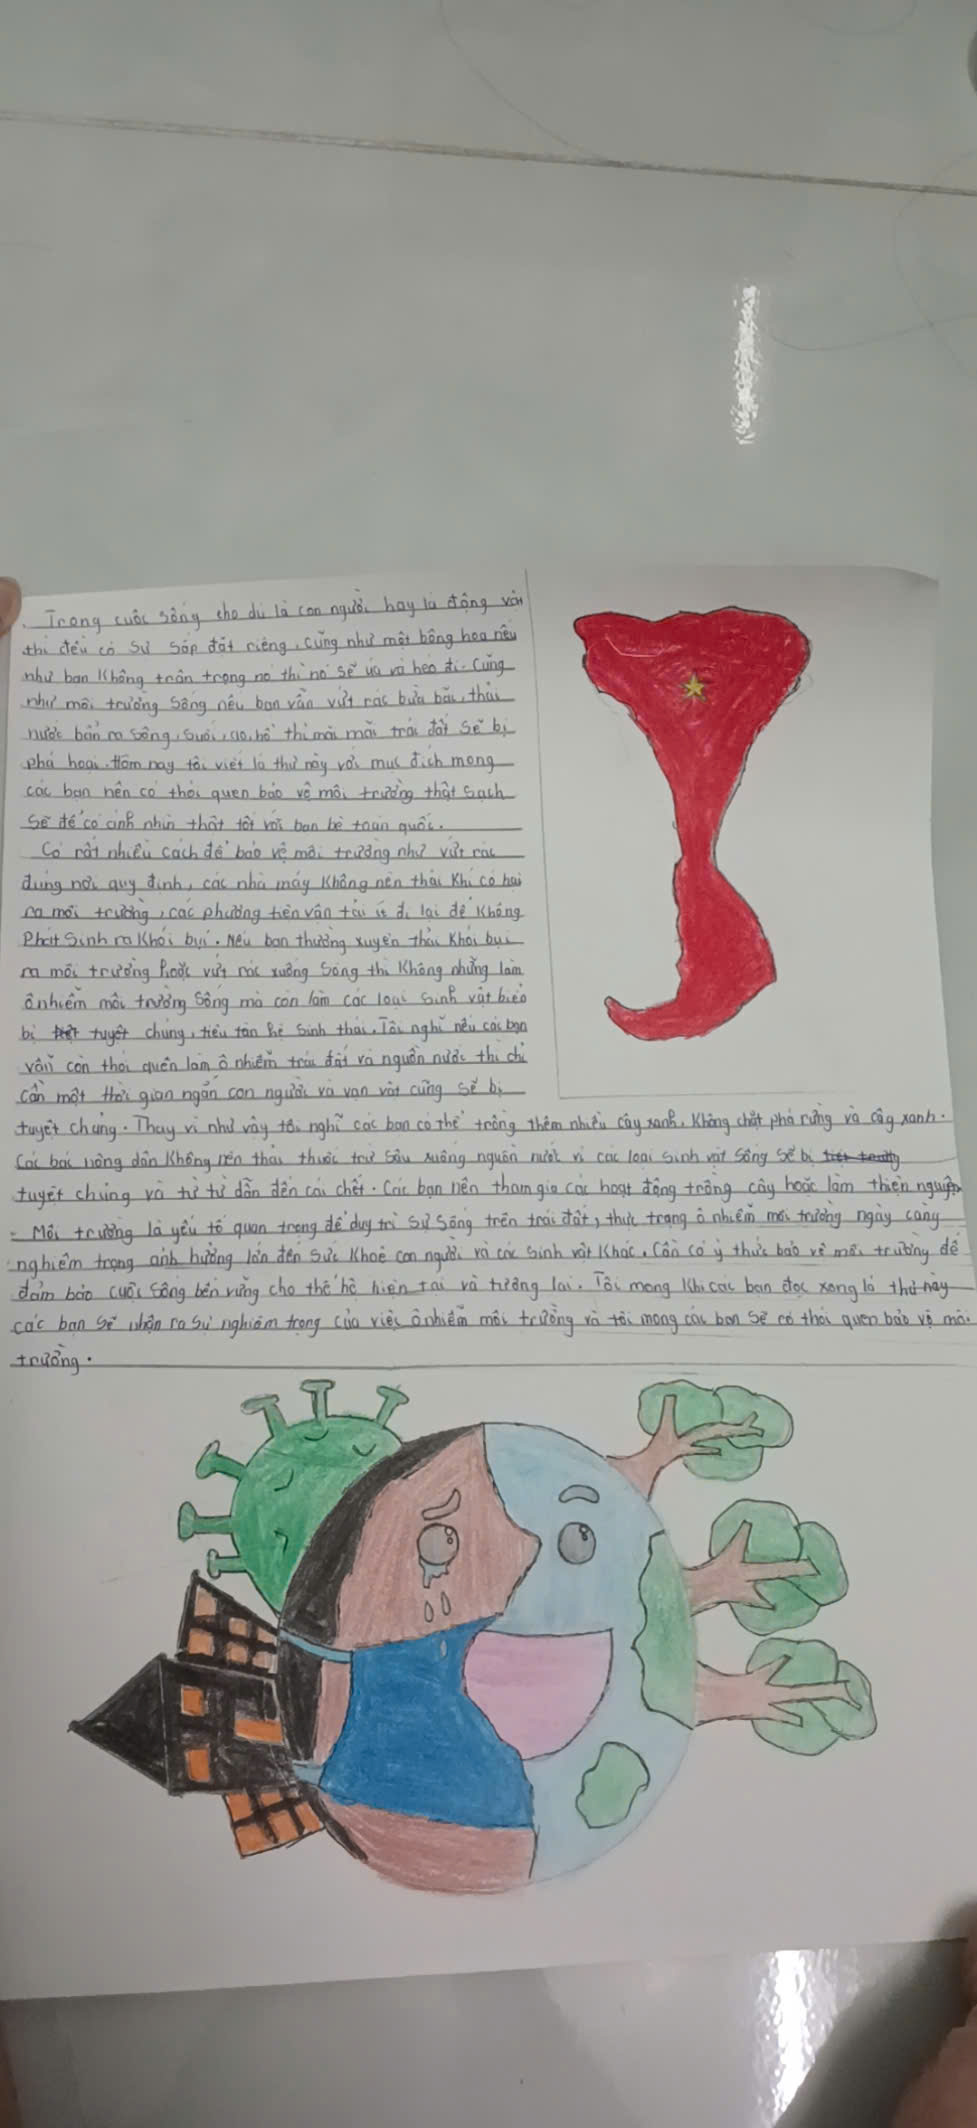 . Trong cuộc sống cho dù là con người hay là động vật
thì đều có sự sắp đặt riêng, cũng như một bông hoa nếu
như bạn không trân trọng nó thì nó sẽ úa và héo đi. Cũng
như môi trường sống nếu bạn vẫn vứt rác bừa bãi, thải
nước bẩn ra sông, suối, ao, hồ thì mãi mãi trái đất sẽ bị
phá hoại. Hôm nay tôi viết lá thư này với mục đích mong
các bạn nên có thói quen bảo vệ môi trường thật sạch
sẽ để có ánh nhìn thật tốt với bạn bè toàn quốc.
Có rất nhiều cách để bảo vệ môi trường như vứt rác
đúng nơi quy định, các nhà máy không nên thải khí có hại
ra môi trường, các phương tiện vận tải ít đi lại để không
phát sinh ra khói bụi. Nếu bạn thường xuyên thải khói bụi
ra môi trường hoặc vứt rác xuống sông thì không những làm
ônhiễm môi trường sống mà còn làm các loại sinh vật biển
bị tuyệt chủng, tiêu tán hệ sinh thái. Tôi nghĩ nếu các bạn
vẫn còn thói quên làm ô nhiễm trái đất và nguồn nước thì chỉ
cần một thời gian ngắn con người và vạn vật cũng sẽ bị
tuyệt chủng. Thay vì như vậy tôi nghĩ các bạn có thể trồng thêm nhiều cây xanh, không chặt phá rừng và cây xanh.
Các bác nông dân không nên thải thuốc trừ sâu xuống nguồn nước vì các loại sinh vật sống sẽ bị
tuyệt chủng và từ từ dẫn đến cái chết. Các bạn nên tham gia các hoạt động trồng cây hoặc làm thiện nguyện
- Môi trường là yếu tố quan trọng để duy trì sự sống trên trái đất, thực trạng ô nhiễm môi trường ngày càng
nghiêm trọng ảnh hưởng lớn đến sức khoẻ con người và các sinh vật khác. Cần có ý thức bảo vệ môi trường để
đảm bảo cuộc sống bền vững cho thế hệ hiện tại và tương lai. Tôi mong khi các bạn đọc xong lá thư này
các bạn sẽ nhận ra sự nghiêm trọng của việc ônhiễm môi trường và tôi mong các bạn sẽ có thói quen bảo vệ môi
trường.